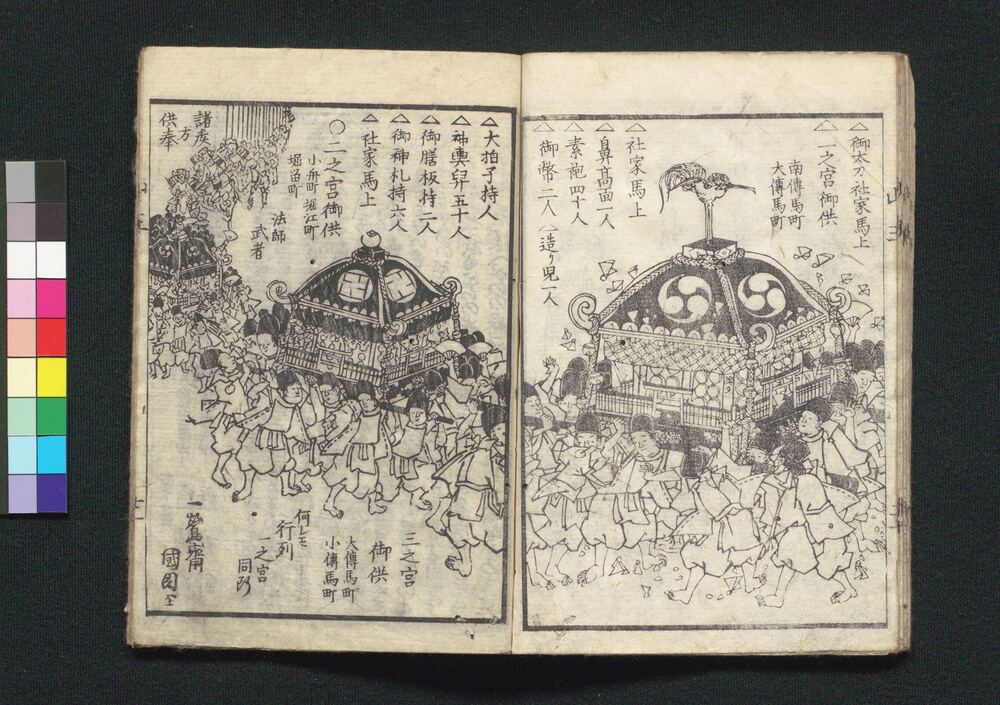 △御太刀社家馬上
△一之宮御供
南傳馬町
大傳馬町
△社家馬上
△鼻高面一人
△素袍四十人
△御幣二人
造り児一人
△大拍子持人
△神輿舁五十人
△御膳板持二人
△御神札持六人
△社家馬上
〇二之宮御供
小舟町 堀江町
堀留町
法師
武者
諸矦
方
供奉
三之宮
御供
大傳馬町
小傳馬町
何レモ
行列
一之宮
同断
一鶯齋
國周画